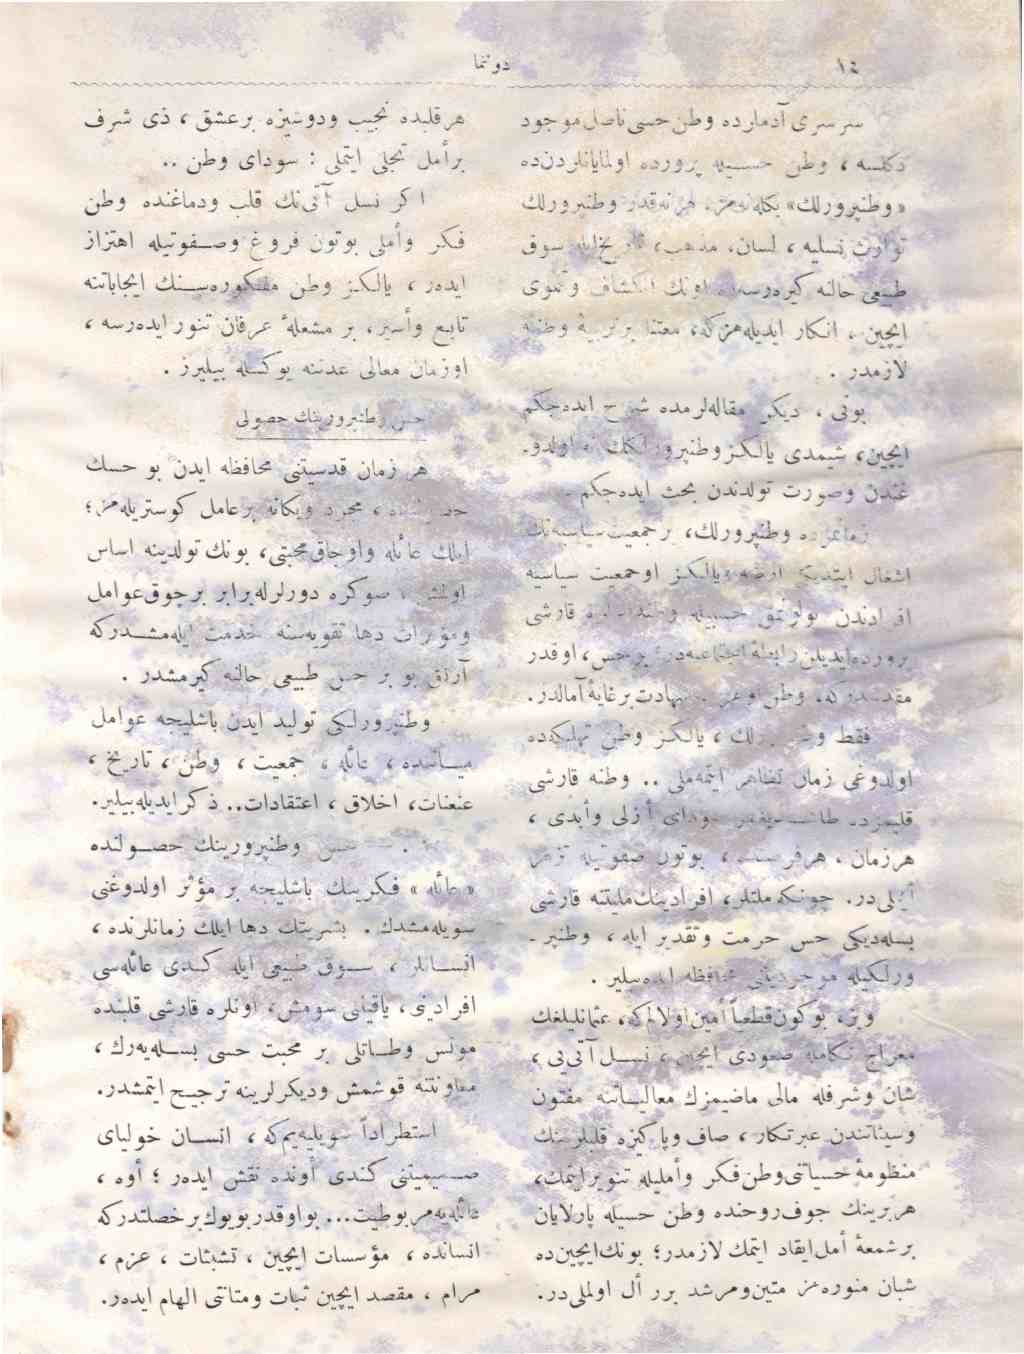 ١٤
دوننما
سرسری آدملرده وطن حسی ناصل موجود
دكلسه ، وطن حسـيله پرورده اولمايانلردن‌ده
«وطنپرورلك» بكله‌نه‌مز. هر نه‌قدر وطنپرورلك
توارث نسليه ، لسان، مذهب، تاريخ ايله سوق
طبيعی حالنه كيره‌رسه‌ده اونك انكشاف و نموی
ايچين ، انكار ايديله‌مزكه، معتنا بر تربيهٔ وطنيه
لازمدر .
بونی ، ديكر مقاله‌لرمده شرح ايده‌جكم
ايچين، شيمدی يالكـز وطنپرورلكك نه اولدو-
غندن وصورت تولدندن بحث ايده‌جكم .
زمانمزده وطنپرورلك، بر جمعيت سياسيه‌نك
اشغال ايتديكی ارضه «يالكـز اوجمعيت سياسيه
افرادندن بولونمق حسيله
پرورده‌ايديلن رابطهٔ اجتماعيه‌در» بوحس، اوقدر
مقدسدركه، وطن اوغرنده شهادت برغايهٔ آمالدر.
فقط وطنپرورلك ، يالكـز وطن تهلكه‌ده
اولدوغی زمان تظاهر ايتمه‌ملی .. وطنه قارشی
سودای أزلی وأبدی ،
هرزمان ، هرفرصتده ، بوتون صفوتيله تزهر
ايتملی‌در. چونكه ملتلر، افرادينك مليتنه قارشی
بسله‌ديكی حس حرمت وتقدير ايله ، وطنپر-
ورلكيله موجوديتنی محافظه ايده‌بيلير .
وبز، بوكون قطعياً أمين‌اولالم‌كه، عثمانليلغك
معراج تكامله صعودی ايچين ، نسـل آتی‌يی ،
شان وشرفله مالی ماضيمزك معاليـاتنه مفتون
وسيئاتندن عبرتكار ، صاف وپاكيزه قلبلرينك
منظومهٔ حسياتنی وطن فكر وأمليله تنوير ايتمك،
هربرينك جوف روحنده وطن حسيله پارلايان
برشمعهٔ أمل ايقاد ايتمك لازمدر؛ بونك‌ايچين‌ده
شبان منوره‌مز متين‌ومرشد برر أل اولملی‌در.
هرقلبده نجيب ودوشيزه برعشق ، ذی شرف
برأمل تجلی ايتملی : سودای وطن ..
اكر نسل آتی‌نك قلب ودماغنده وطن
فكر وأملی بوتون فروغ وصـفوتيله اهتزاز
ايدەر ، يالكـز وطن مفكوره‌سـنك ايجاباتنه
تابع وأسير، بر مشعلهٔ عرفان تنور ايده‌رسه ،
اوزمان معالی عدننه يوكسله بيليرز .
حس وطنپرورينك حصولی
هر زمان قدسيتنی محافظه ايدن بو حسك
حصولنده ، مجرد ويكانه برعامل كوستريله‌مز؛
ايلك عائله واوجاق‌محبتی، بونك تولدينه اساس
اولمش ، صوكره دورلرله‌برابر برچوق‌عوامل
ومؤثرات دها تقويه‌سنه خدمت ايله‌مشـدركه
آرتق بو بر حس طبيعی حالنه كيرمشدر .
وطنپرورلكی توليد ايدن باشليجه عوامل
مياننده ، عائله ، جمعيت ، وطن ، تاريخ ،
عنعنات، اخلاق ، اعتقادات.. ذكرايديله‌بيلير.
حس وطنپرورينك حصـولنده
«عائله» فكرينك باشليجه بر مؤثر اولدوغنی
سويله‌مشدك . بشريتك دها ايلك زمانلرنده ،
انسـانلر ، سـوق طبيعی ايله كـندی عائله‌سی
افرادينی، ياقينی سومش، اونلره قارشی قلبنده
مونس وطـاتلی بر محبت حسی بسـله‌يه‌رك ،
معاونتنه قوشمش وديكرلرينه ترجيـح ايتمشدر.
استطراداً سويليه‌يم‌كه ، انسـان خوليای
صـميميتنی كندی أونده نقش ايدەر ؛ أوه ،
عائله‌يه‌مربوطيت... بواوقدربويوك‌برخصلتدركه
انسانده ، مؤسسات ايچين ، تشبثات ، عزم ،
مرام ، مقصد ايچين ثبات ومتانتی الهام ايدەر.